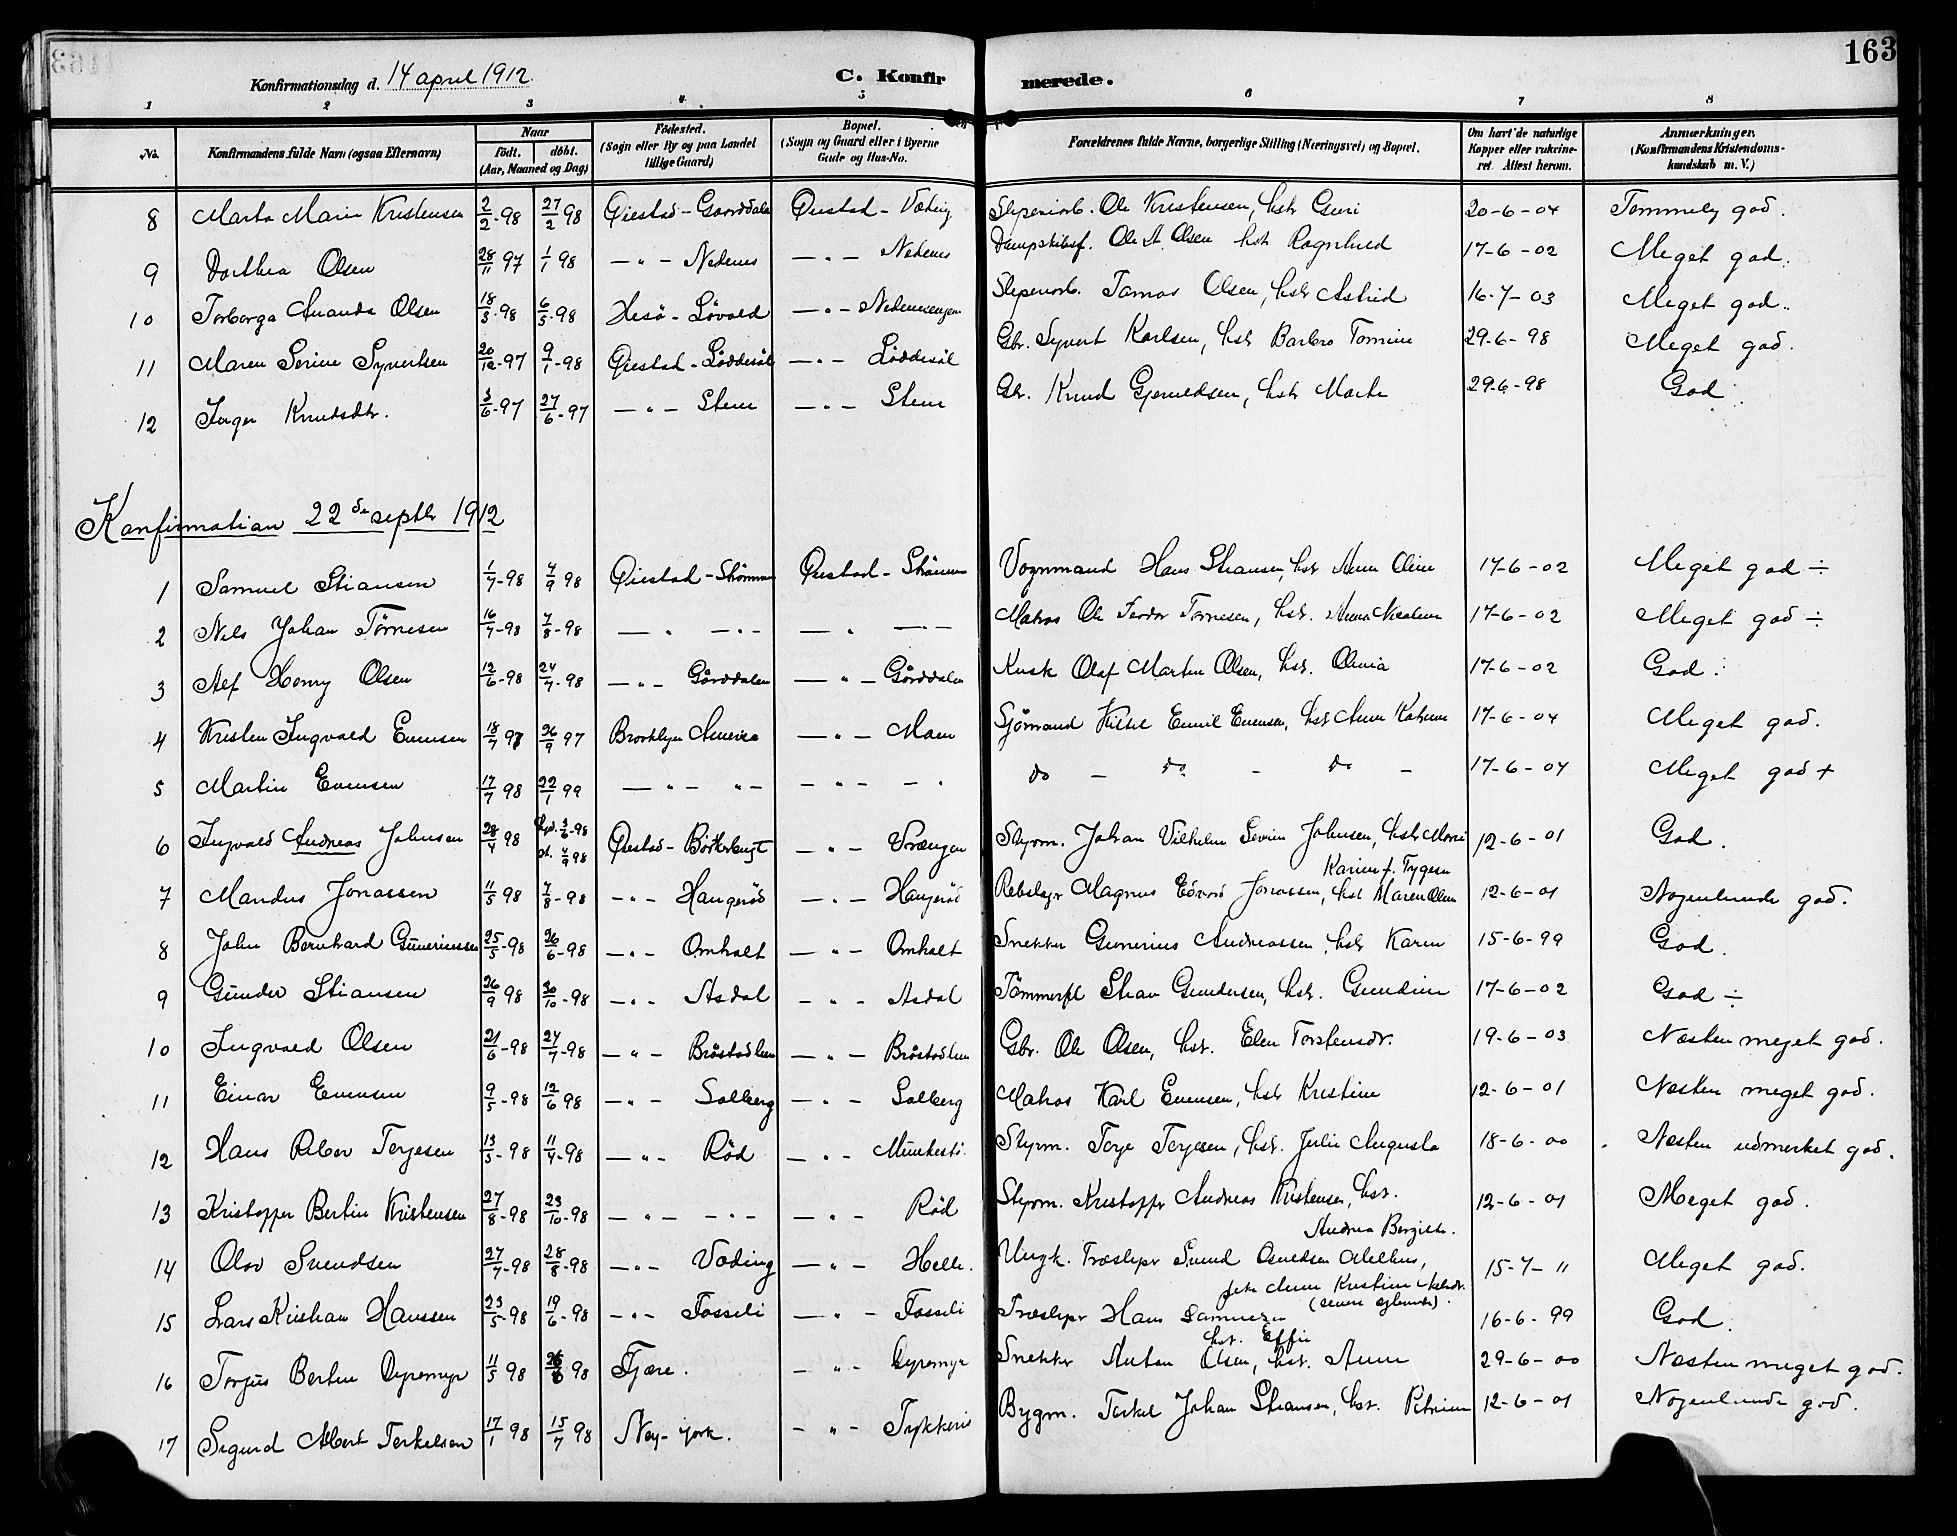 163
Konfirmationsdag d. 14 april 1912
C. Konfirmerede.
1 2 3 4 5 6 7 8
No. Konfirmandens fulde Navn (ogsaa Efternavn) Naar født. døbt. (Aar, Maaned og Dag) Fødested. (Sogn eller By og paa Landet tillige Gaard) Bopæl. (Sogn og Gaard eller i Byerne Gade og Hus-No. Forældrenes fulde Navne, borgerlige Stilling (Næringsvei) og Bopæl. Om havt de naturlige Kopper eller vakcineret. Attest herom. Anmærkninger. (Konfirmandens Kristendomskundskab m. V.)
8 Marta Marie Kristensen 2/2-98 27/2 98 Øiestad - Gaarddalen Øiestad - Vøding Sliperiarb. Ole Kristensen, hstr Guri 20-6-04 Temmelig god.
9 Dorthea Olsen 28/11 97 1/1 98 - " - Nedenes - " - Nedenes Dampskibsf. Ole A. Olsen hstr Ragnhild 17-6-02 Meget god.
10 Torborga Amanda Olsen 18/3-98 6/5-98 Hesø - Løvold - " - Nedenesengen Sliperiarb. Tomas Olsen, hstr Astrid 16-7-03 Meget god.
11 Maren Serine Syvertsen 20/12-97 9/1-98 Øiestad - Løddesøl - " - Løddesøl Gbr. Syvert Karlsen, hstr Barbro Tomine 29-6-98 Meget god.
12 Inger Knudsdtr. 3/6-97 27/6-97 - " - Stene - " - Stene Gbr. Knud Gjeruldsen, hstr Marte 29-6-98 God
Konfirmation 22de septbr 1912
1 Samuel Stiansen 1/7-98 4/9 98 Øiestad - Øiestad - Vognmand Hans Stiansen, hstr Anne Oline 17-6-02 Meget god ÷
2 Nils Johan Tørnesen 16/7-98 7/8-98 - " - " - - " - " - Matros Ole Teodor Tørnesen, hstr. Anna Nicoline 17-6-02 Meget god ÷
3 Alf Henry Olsen 12/6-98 24/7-98 - " - Gårddalen - " - Gårddalen Kusk Olaf Martin Olsen, hstr. Olivia 17-6-02 God.
4 Kristen Ingvald Evensen 18/7 97 26/9 97 Brooklyn Amerika - " - Moen Sjømand Kittel Emil Evensen, hstr Anne Katrine 17-6-04 Meget god.
5 Martin Evensen 17/7 98 22/1 99 - " - " - - " - " do - do - do - 17-6-04 Meget god +
6 Ingvald Andreas Johnsen 28/4 98 -98 4/9 98 Øiestad - - " - Vrængen Styrm. Johan Vilhelm Severin Johnsen, hstr Marie Karine f. Tygesen 12-6-01 God.
7 Mandus Jonassen 11/5 98 7/8-98 - " - Haugerød - " - Haugerød Rebslagr Magnus Edvard Jonassen, hstr Maren Oline 12-6-01 Nogenlunde god.
8 John Bernhard Gunerinssen 25/5-98 26/6-98 - " - Omholt - " - Omholt Snekker Gunerius Andreassen, hstr Karen 15-6-99 God.
9 Gunder Stiansen 26/9 98 30/10-98 - " - Asdal " - Asdal Tømmerfl Stian Gundersen, hstr. Gundine 17-6-02 God ÷
10 Ingvald Olsen 21/6-98 24/7-98 - " - Brøstadlien - " - Brøstadlien Gbr. Ole Olsen, hstr. Elen Torstensdtr. 19-6-03 Næsten meget god.
11 Einar Evensen 9/5-98 12/6 98 - " - Solberg - " - Solberg Matros Karl Evensen, hstr Kristine 12-6-01 Næsten meget god.
12 Hans Reber Terjesen 13/3-98 11/4-98 - " - Rød - " - Styrm. Terje Terjesen, hstr. Julie Augusta 18-6-00 Næsten udmerket god.
13 Kristoffer Bertin Kristensen 27/8-98 23/10-98 - " - " - - " - Rød Styrm. Kristoffer Andreas Kristensen, hstr. Andrea Bergithe. 12-6-01 Meget god.
14 Olav Svendsen 27/7-98 28/8-98 - " - Vøding - " - Helle. Ungk. Træsliper Svend Osuldsen Melhus, pike Anne Kristine (senere egtevied). 15-7-11 Meget god.
15 Lars Kristian Hanssen 23/5-98 19/6-98 - " - Fosseli - " - Fosseli Træsliper Hans Samuelsen hstr. Effie 16-6-99 God.
16 Torjus Bertin Dyremyr 11/5 98 26/6 98 Fjære. - " - Dyremyr Snekker Anton Olsen, hstr. Anne 29-6-00 Næsten meget god.
17 Sigurd Albert Terkelsen 17/1 98 15/7 98 Ney-york. - " - Bygm. Terkel Johan Stiansen, hstr. Petrine 12-6-01 Nogenlunde god.